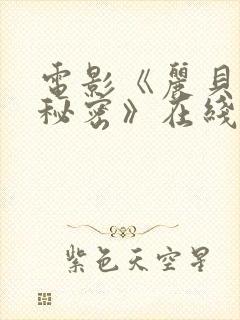 電影《麗貝
秘密》在綫
紫色天空星